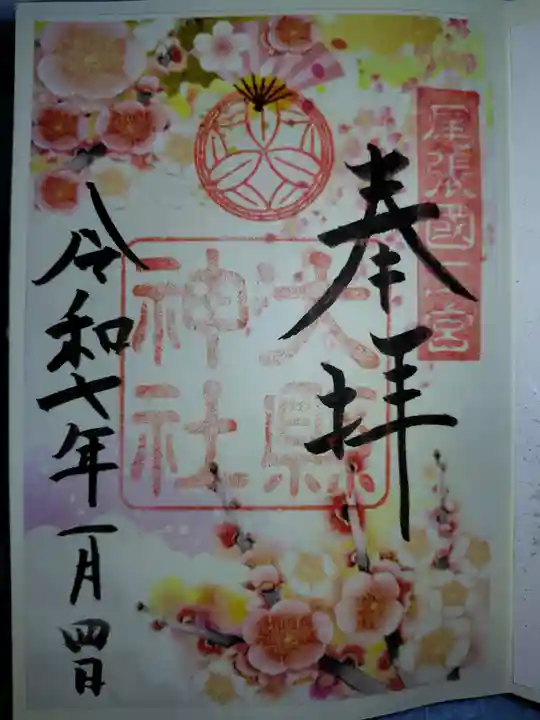 尾張國二宮
奉拝
大縣
神社
令和七年一月四日